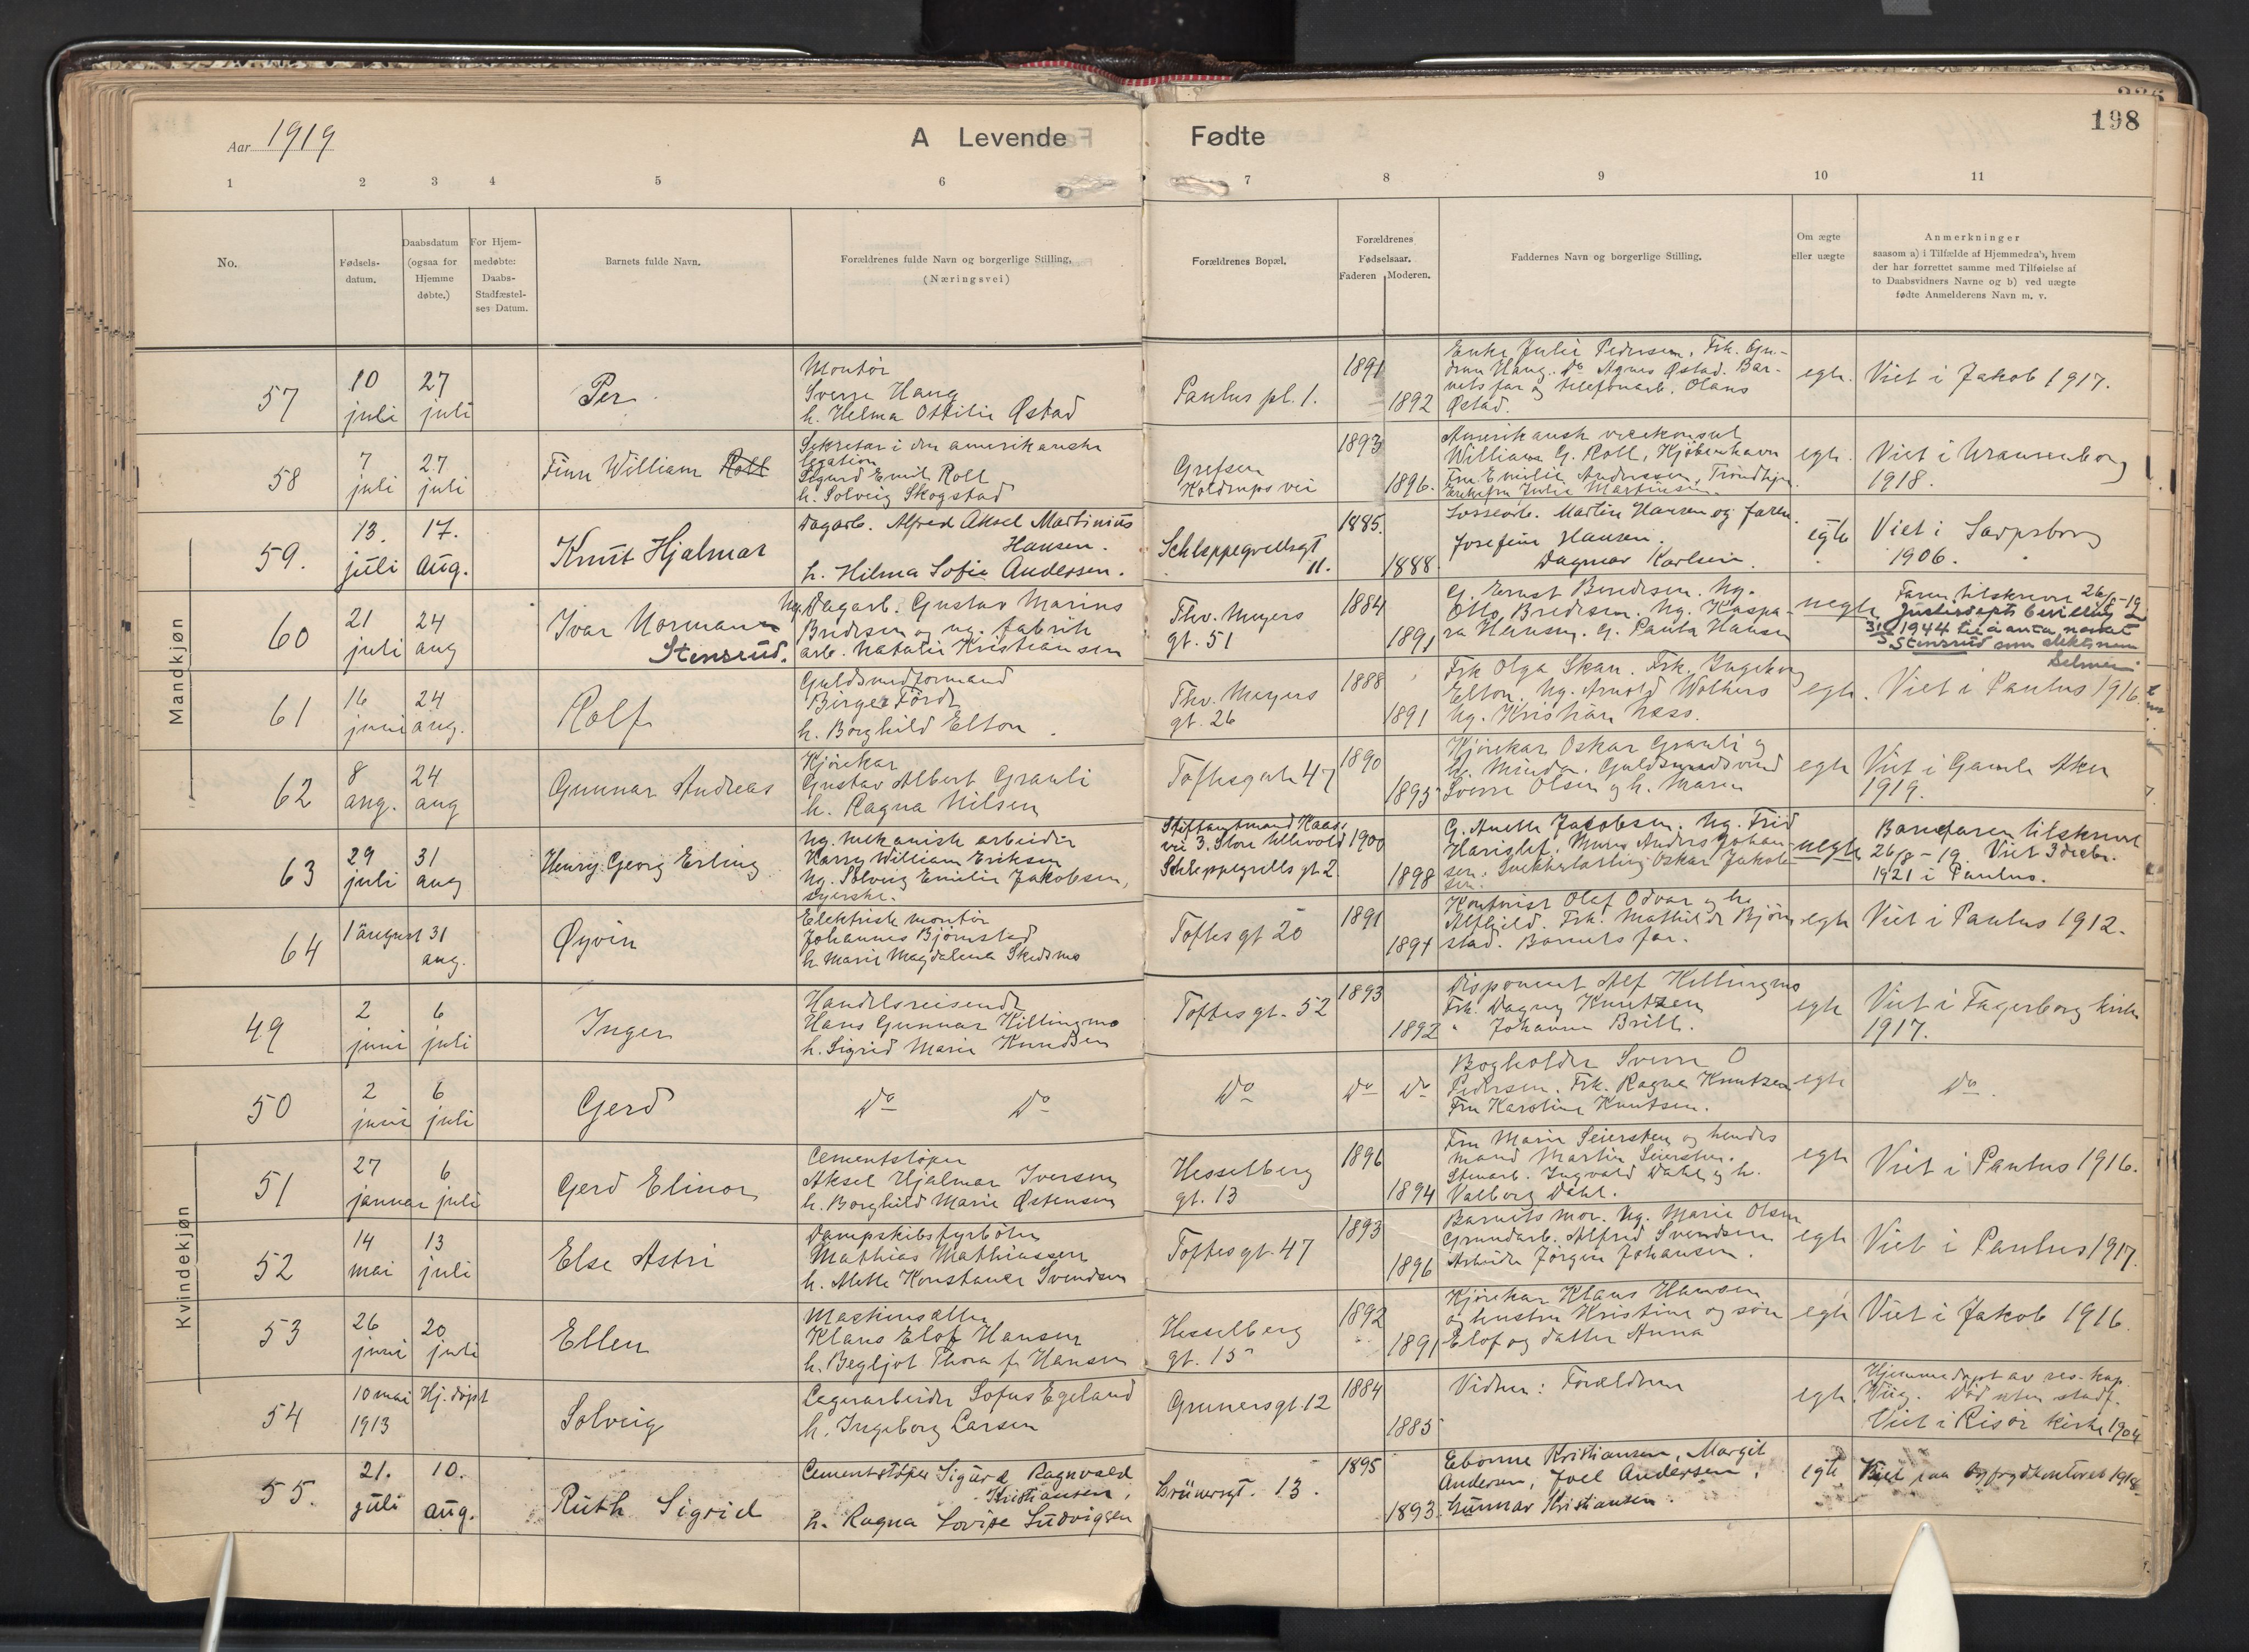 198
Aar 1919
A Levende Fødte
1 2 3 4 5 6 7 8 9 10 11
No.
Fødsels-
datum.
Daabsdatum
(ogsaa for
Hjemme
døbte.)
For Hjem-
medøbte:
Daabs-
Stadfæstel-
ses Datum.
Barnets fulde Navn.
Forældrenes fulde Navn og borgerlige Stilling.
(Næringsvei)
Forældrenes Bopæl.
Forældrenes
Fødselsaar.
Faderen Moderen.
Faddernes Navn og borgerlige Stilling.
Om ægte
eller uægte
Anmerkninger
saasom a) i Tilfælde af Hjemmedra's, hvem
der har forrettet samme med Tilføielse af
to Daabsvidners Navne og b) ved uægte
fødte Anmelderens Navn m. v.
Mandkjøn
57
10
juli
27
juli
Per
Montør
Sverre Haug
h. Helma Ottilie Østad
Paulus pl. 1.
1891
1892
Enke Julie Pedersen, Frk. Gu-
drun Haug. Do Agnes Østad. Bar-
nets far og telefonarb. Olaus
Østad.
egte.
Viet i Jakob 1917.
58
7
juli
27
juli
Finn William Roll
Sekretær i den amerikanske
legation
Sigurd Emil Roll
h. Solveig Skogstad
Grefsen
Koldrups vei
1893
1896.
Amerikansk vicekonsul
William G. Roll, Kjøbenhavn
Fru Emilie Anderssen, Trondhjem.
Enkefru Julie Martinsen.
egte.
Viet i Uranienborg
1918.
59.
13.
juli
17.
Aug.
Knut Hjalmar
Dagarb. Alfred Aksel Martinius
Hansen.
h. Hilma Sofie Andersen.
Schleppegrellsgt
11.
1885.
1888.
Lossearb. Martin Hansen og faren.
Josefine Hansen.
Dagmar Karlsen.
egte
Viet i Sarpsborg
1906.
60
21
juli
24
aug
Ivar Normann
Stensrud.
Ug. Dagarb. Gustav Marius
Bredesen og ug. fabrik
arb. Natalie Kristiansen
Thv. Meyers
gt. 51
1884
1891
G. Ernst Bendersen. Ug.
Otto Bredesen. Ug. Kaspa-
ra Hansen. G. Paula Hansen
uegte
Faren tilskrevet 26/8-19
Justisdepts bevilling
31/3 1944 til å anta navnet
Stensrud som slektsnavn
61
16
juni
24
aug.
Rolf
Guldsmedformand
Birger Førde
h. Borghild Elton
Thv. Meyers
gt. 26
1888
1891
Frk Olga Skau. Frk. Ingeborg
Elton. Ug. Arnold Wolhers
Ug. Kristian Næss.
egte.
Viet i Paulus 1916.
62
8
aug.
24
aug
Gunnar Andreas
Kjørekar
Gustav Albert Grauli
h. Ragna Nilsen
Toftesgate 47
1890
1895
Kjørekar Oskar Grauli og
h. Minda. Guldsmedsvend
Sverre Olsen og h. Maren
egte
Viet i Gamle Aker
1919.
63
29
juli
31
aug
Henry Georg Erling
Ug. mekanisk arbeider
Harry William Eriksen
Ug. Solveig Emilie Jakobsen,
syerske.
Stiftamtmand Kaas
vei 3. Store Ullevold
Schleppegrells gt 2.
1900
1898
G. Anette Jacobsen. Ug. Frid
Harislef. Murer Anders Johan-
sen. Snekkerlærling Oskar Jakob-
sen.
uegte
Barnefaren tilskrevet
26/8-19. Viet 3 decbr.
1921 i Paulus.
64
1 august
31
aug.
Øyvin
Elektrisk montør
Johannes Bjørnstad
h. Marie Magdalena Skedsmo
Toftes gt 20
1891
1891
Kontorist Olaf Odvar og h.
Alfhild. Frk. Mathilde Bjørn-
stad. Barnets far.
egte
Viet i Paulus 1912.
Kvindekjøn
49
2
juni
6
juli
Inger
Handelsreisende
Hans Gunnar Killingmo
h. Sigrid Marie Knudsen
Toftesgt. 52
1893
1892
Disponent Alf Killingmo
Frk. Dagny Knutzen
" Johanne Brill.
egte
Viet i Fagerborg kirke
1917.
50
2
juni
6
juli
Gerd
Do Do
Do
Do
Do
Bogholder Sverre O
Pedersen. Frk. Ragna Knutzen
Fru Karoline Knutsen.
egte
Do.
51
27
januar
6
juli
Gerd Elinor
Cementstøper
Aksel Hjalmar Iversen
h. Borghild Marie Østensen
Hesselberg
gt. 13
1896
1894
Fru Marie Seiersten og hendes
mand Martin Seiersten.
Stenarb. Ingvald Dahl og h.
Valborg Dahl.
egte
Viet i Paulus 1916.
52
14
mai
13
juli
Else Astri
Dampskibsfyrbøter
Mathias Mathiassen
h. Mette Konstance Svendsen
Toftesgt. 47
1893
1896
Barnets mor. Ug. Marie Olsen
Grundarb. Alfred Svendsen
Arbeider Jørgen Johansen.
egte
Viet i Paulus 1917.
53
26
juni
20
juli
Ellen
Maskinsætter
Klaus Elof Hansen
h. Begljot Thora f. Hansen
Hesselberg
gt. 15
1892
1891
Kjørekar Klaus Hansen
og hustru Kristine og søn
Elof og datter Anna
egte
Viet i Jakob 1916.
54
10 mai
1913
Hj. døpt
Solveig
Lagerarbeider Sofus Egeland
h. Ingeborg Larsen
Grunersgt. 12
1884
1885
Vidner: Forældrene
egte
Hjemmedøpt av res. kap.
Wiig. Død uten stadf.
Viet i Risør kirke 1904
55.
21.
juli
10.
aug.
Ruth Sigrid
Cementstøper Sigurd Ragnvald
Kristiansen,
h. Ragna Lovise Ludvigsen
Grünersgt. 13.
1895
1893.
Ebonne Kristiansen, Margit
Andersen, Joel Andersen,
Gunnar Kristiansen.
egte
Viet paa byfogdkontoret 1918